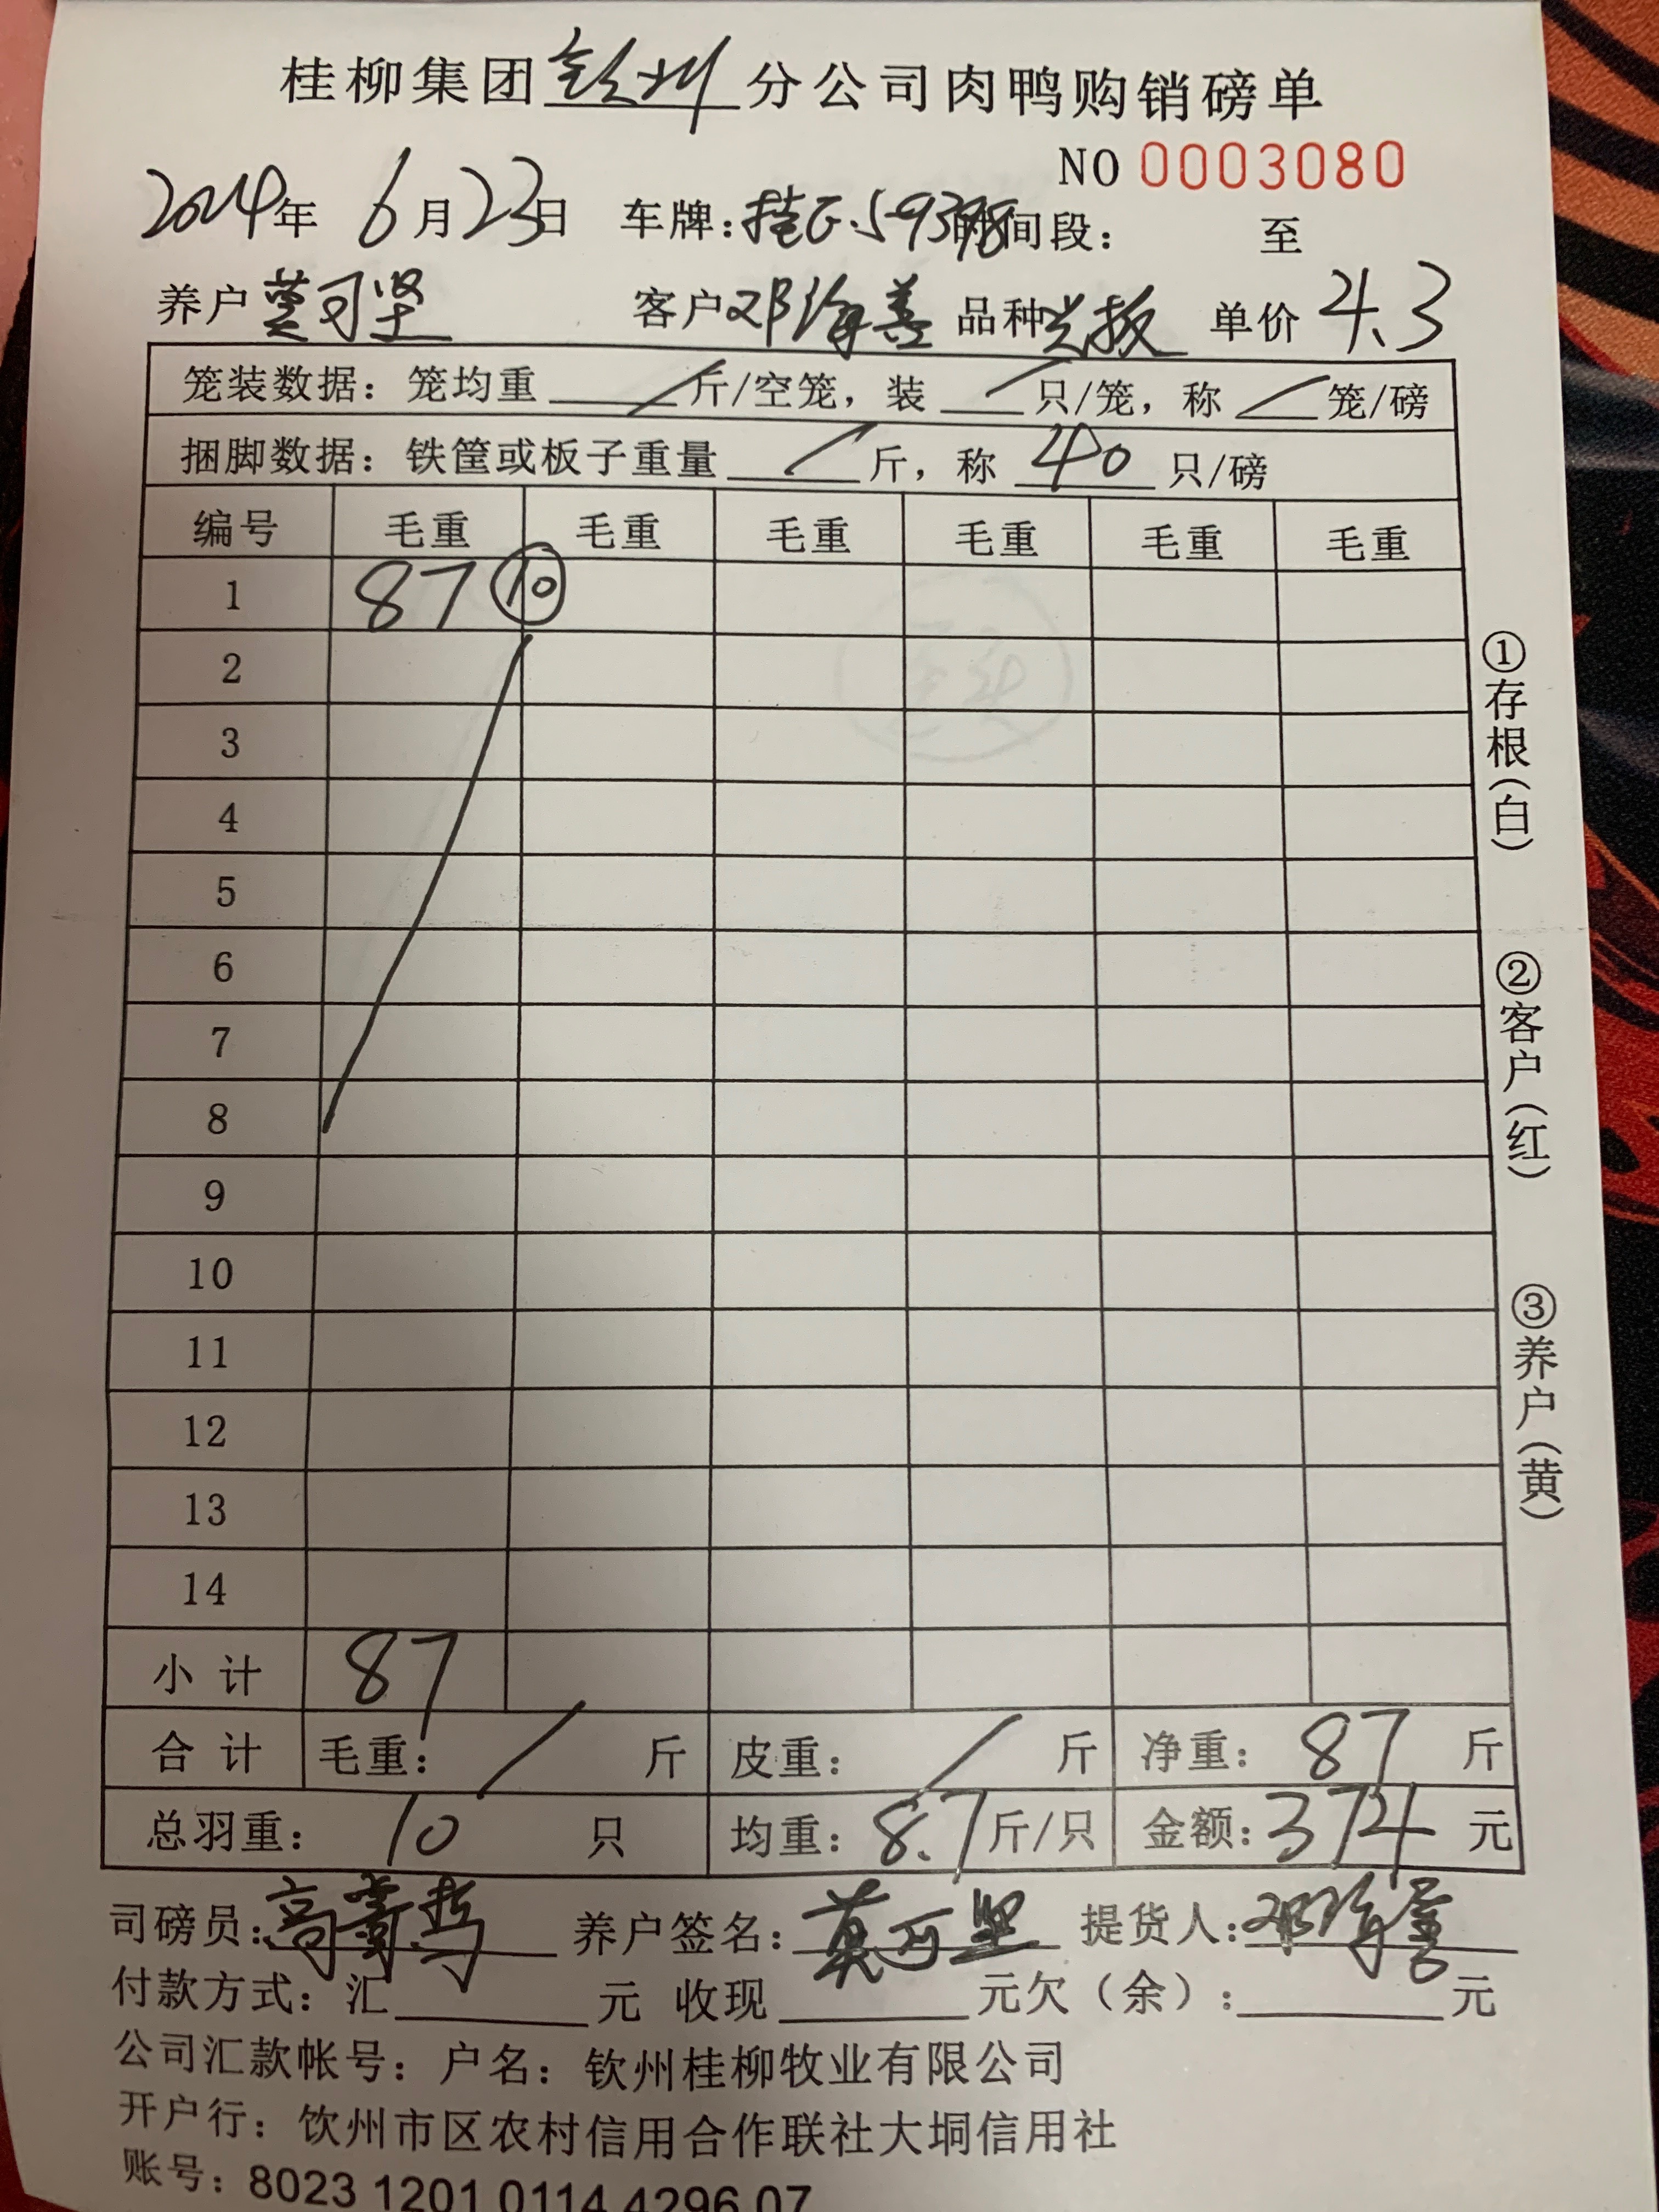 桂柳集团钦州分公司肉鸭购销磅单
NO 0003080
2024年 6月23日 车牌:桂G.59398 时间段: 至
养户 莫可坚 客户 邓海善 品种 单价 4.3
笼装数据: 笼均重 / 斤/空笼, 装 / 只/笼, 称 / 笼/磅
捆脚数据: 铁筐或板子重量 / 斤, 称 40 只/磅
编号 毛重 毛重 毛重 毛重 毛重 毛重
1 87 ⑩
2
3
4
5
6
7
8
9
10
11
12
13
14
小计 87
合计 毛重: / 斤 皮重: / 斤 净重: 87 斤
总羽重: 10 只 均重: 8.7 斤/只 金额: 374 元
司磅员: 养户签名: 莫可坚 提货人: 邓海善
付款方式: 汇 元 收现 元欠(余): 元
公司汇款帐号: 户名: 钦州桂柳牧业有限公司
开户行: 钦州市区农村信用合作联社大垌信用社
账号: 8023 1201 0114 4296 07
①存根(白)
②客户(红)
③养户(黄)